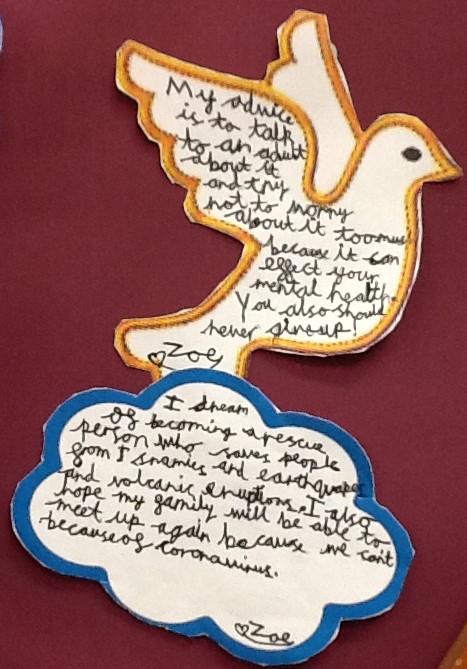 My advice
is to talk
to an adult
about it
and try
not to worry
about it toomuch
because it can
effect your
mental health.
You also should
never giveup!
♡Zoe
I dream
of becoming a rescue
person who saves people
from Tsnamies and earthquakes
and volcanic eruptions. I also
hope my family will be able to
meet up again because we can't
because of coronavirus.
♡Zoe